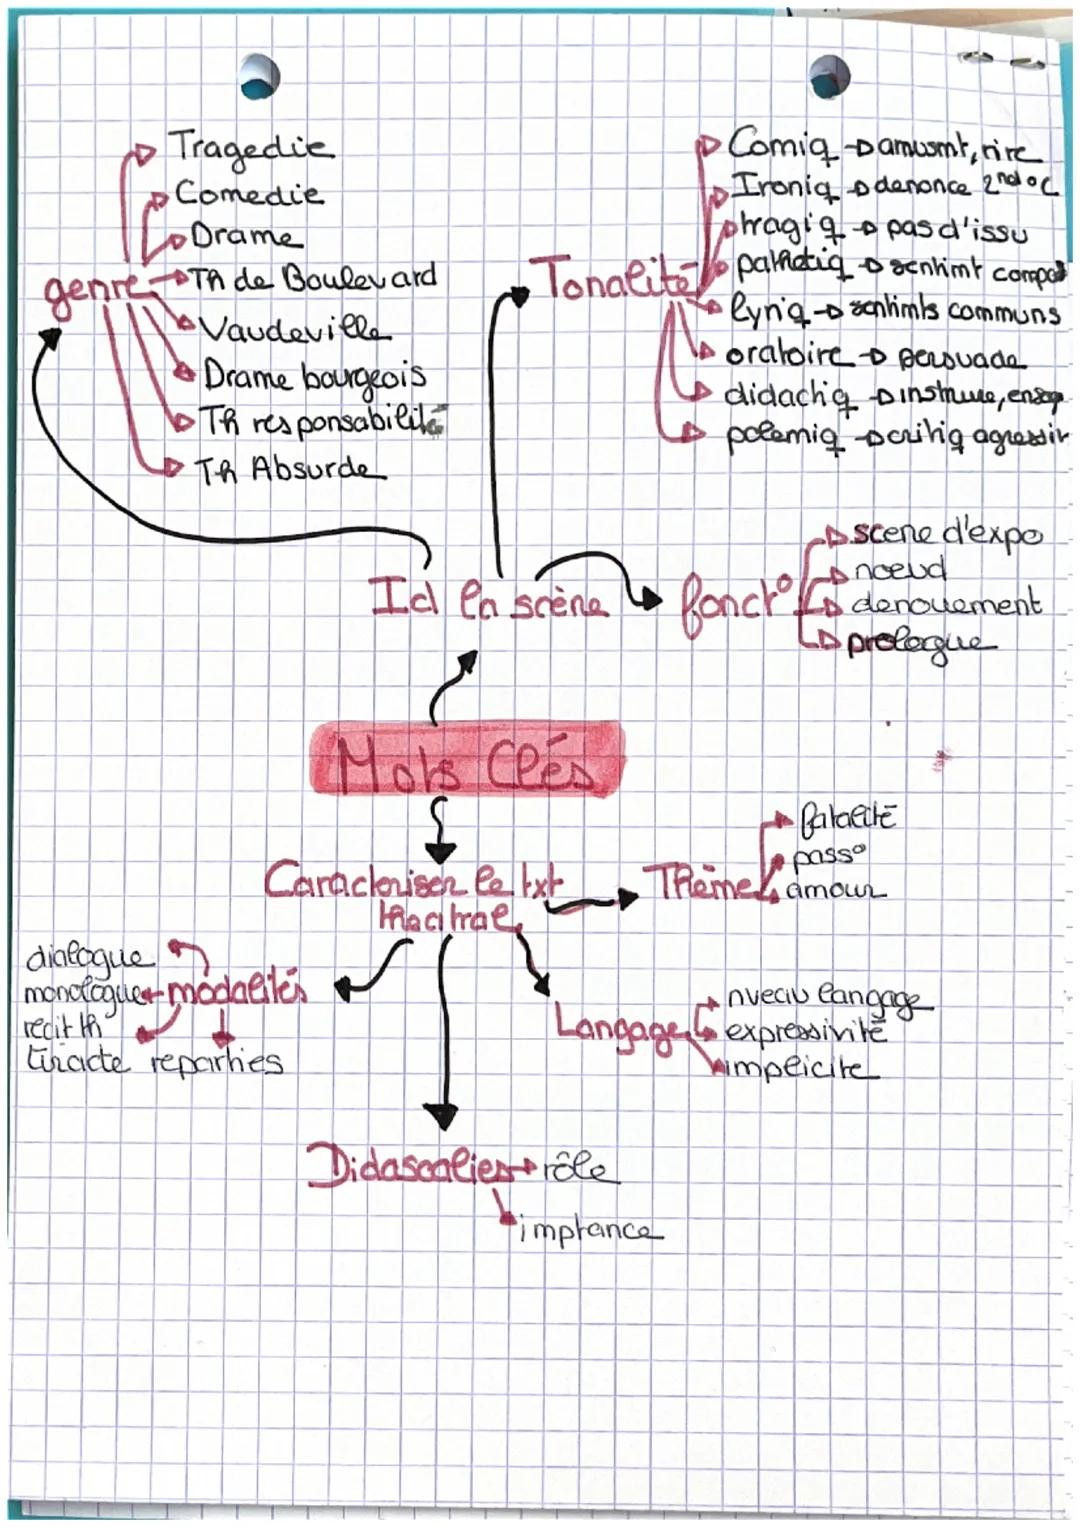 Tragedie
Comedie
Drame
genre
Th de Boulevard
Vaudeville
Drame bourgeois
Th responsabilité
Th Absurde
Tonalité
Comiq → amusmt, rire
Ironiq → denonce 2nd °
tragiq → pas d'issu
pathetiq → sentimt compas
lyriq → sentimts communs
oratoire → persuade
didactiq → instruire, enseig
polemiq → critiq agressiv
Id la scène
fonct°
scene d'expo
noeud
denouement
prologue
Mots Clés
Caracteriser le txt
theatrale
Thème
fatalité
pass°
amour
dialogue
monologue
modalités
recit th
tiracte reparties
Langage
nveau langage
expressivité
implicite
Didascalies → rôle
imptance